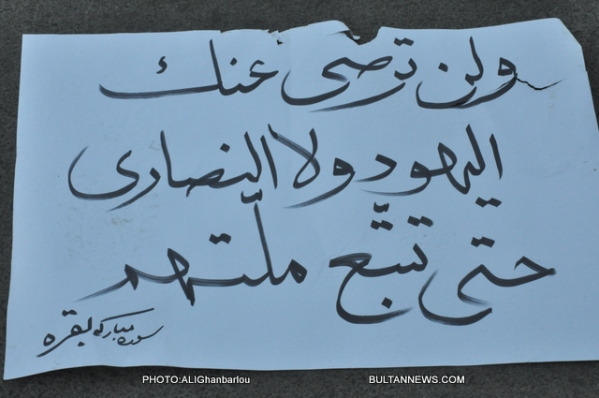 ولن ترضی عنك
الیهود ولا النصاری
حتی تتّبع ملّتهم
سوره مبارکه بقره
PHOTO:ALIGhanbarlou BULTANNEWS.COM